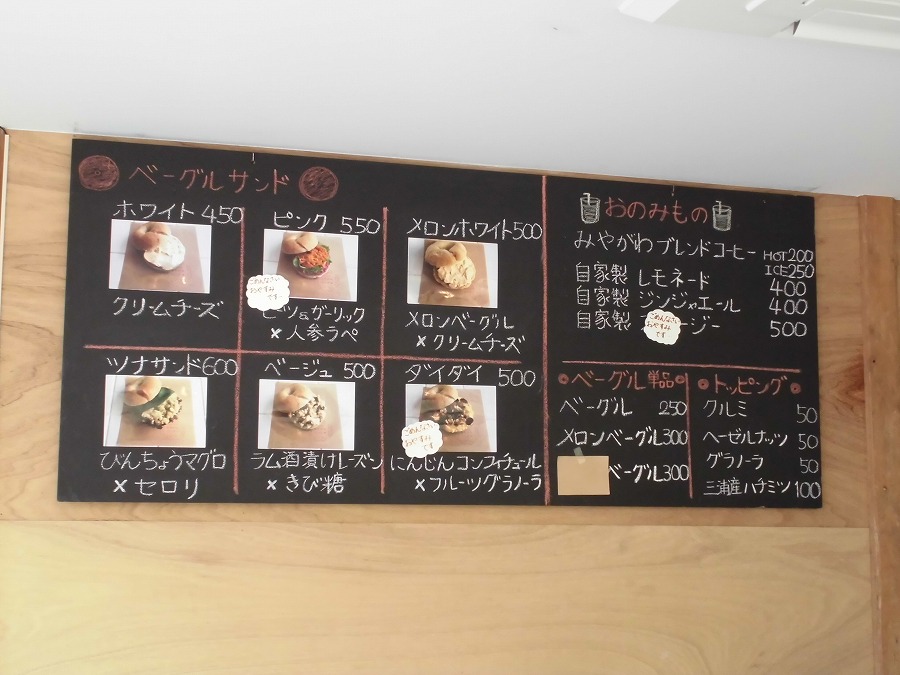 ベーグルサンド
ホワイト 450
クリームチーズ
ピンク 550
ごめんなさい
おやすみ
です
ビーツ&ガーリック
×人参ラペ
メロンホワイト500
メロンベーグル
×クリームチーズ
ツナサンド600
びんちょうマグロ
×セロリ
ベージュ 500
ラム酒漬けレーズン
×きび糖
ダイダイ 500
ごめんなさい
おやすみ
です
にんじんコンフィチュール
×フルーツグラノーラ
おのみもの
みやがわブレンドコーヒー HOT200
ICE250
自家製 レモネード 400
自家製 ジンジャエール 400
自家製 ージー 500
ごめんなさい
おやすみ
です
ベーグル単品
ベーグル 250
メロンベーグル300
ベーグル300
トッピング
クルミ 50
ヘーゼルナッツ 50
グラノーラ 50
三浦産ハチミツ100